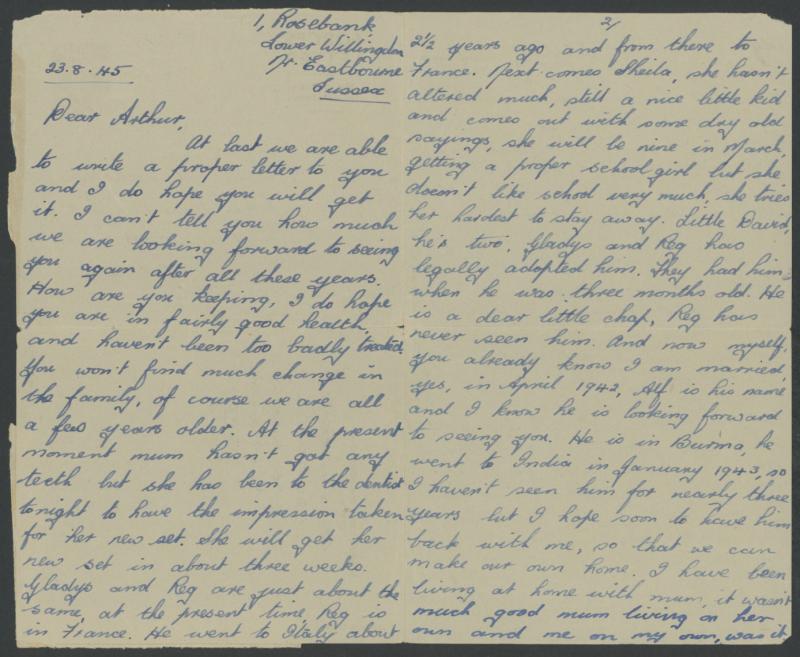 1, Rosebank
Lower Willingdon
Nr. Eastbourne
Sussex
23.8.45
Dear Arthur,
At last we are able
to write a proper letter to you
and I do hope you will get
it. I can't tell you how much
we are looking forward to seeing
you again after all these years.
How are you keeping, I do hope
you are in fairly good health,
and haven't been too badly treated.
You won't find much change in
the family, of course we are all
a few years older. At the present
moment mum hasn't got any
teeth but she has been to the dentist
tonight to have the impression taken
for her new set. She will get her
new set in about three weeks.
Gladys and Reg are just about the
same, at the present time, Reg is
in France. He went to Italy about
2/
2½ years ago and from there to
France. Next comes Sheila, she hasn't
altered much, still a nice little kid
and comes out with some dry old
sayings, she will be nine in March,
getting a proper school girl but she
doesn't like school very much, she tries
her hardest to stay away. Little David,
he's two, Gladys and Reg has
legally adopted him. They had him
when he was three months old. He
is a dear little chap, Reg has
never seen him. And now myself,
you already know I am married,
yes, in April 1942, Alf is his name
and I know he is looking forward
to seeing you. He is in Burma, he
went to India in January 1943, so
I haven't seen him for nearly three
years but I hope soon to have him
back with me, so that we can
make our own home. I have been
living at home with mum, it wasn't
much good mum living on her
own and me on my own, was it